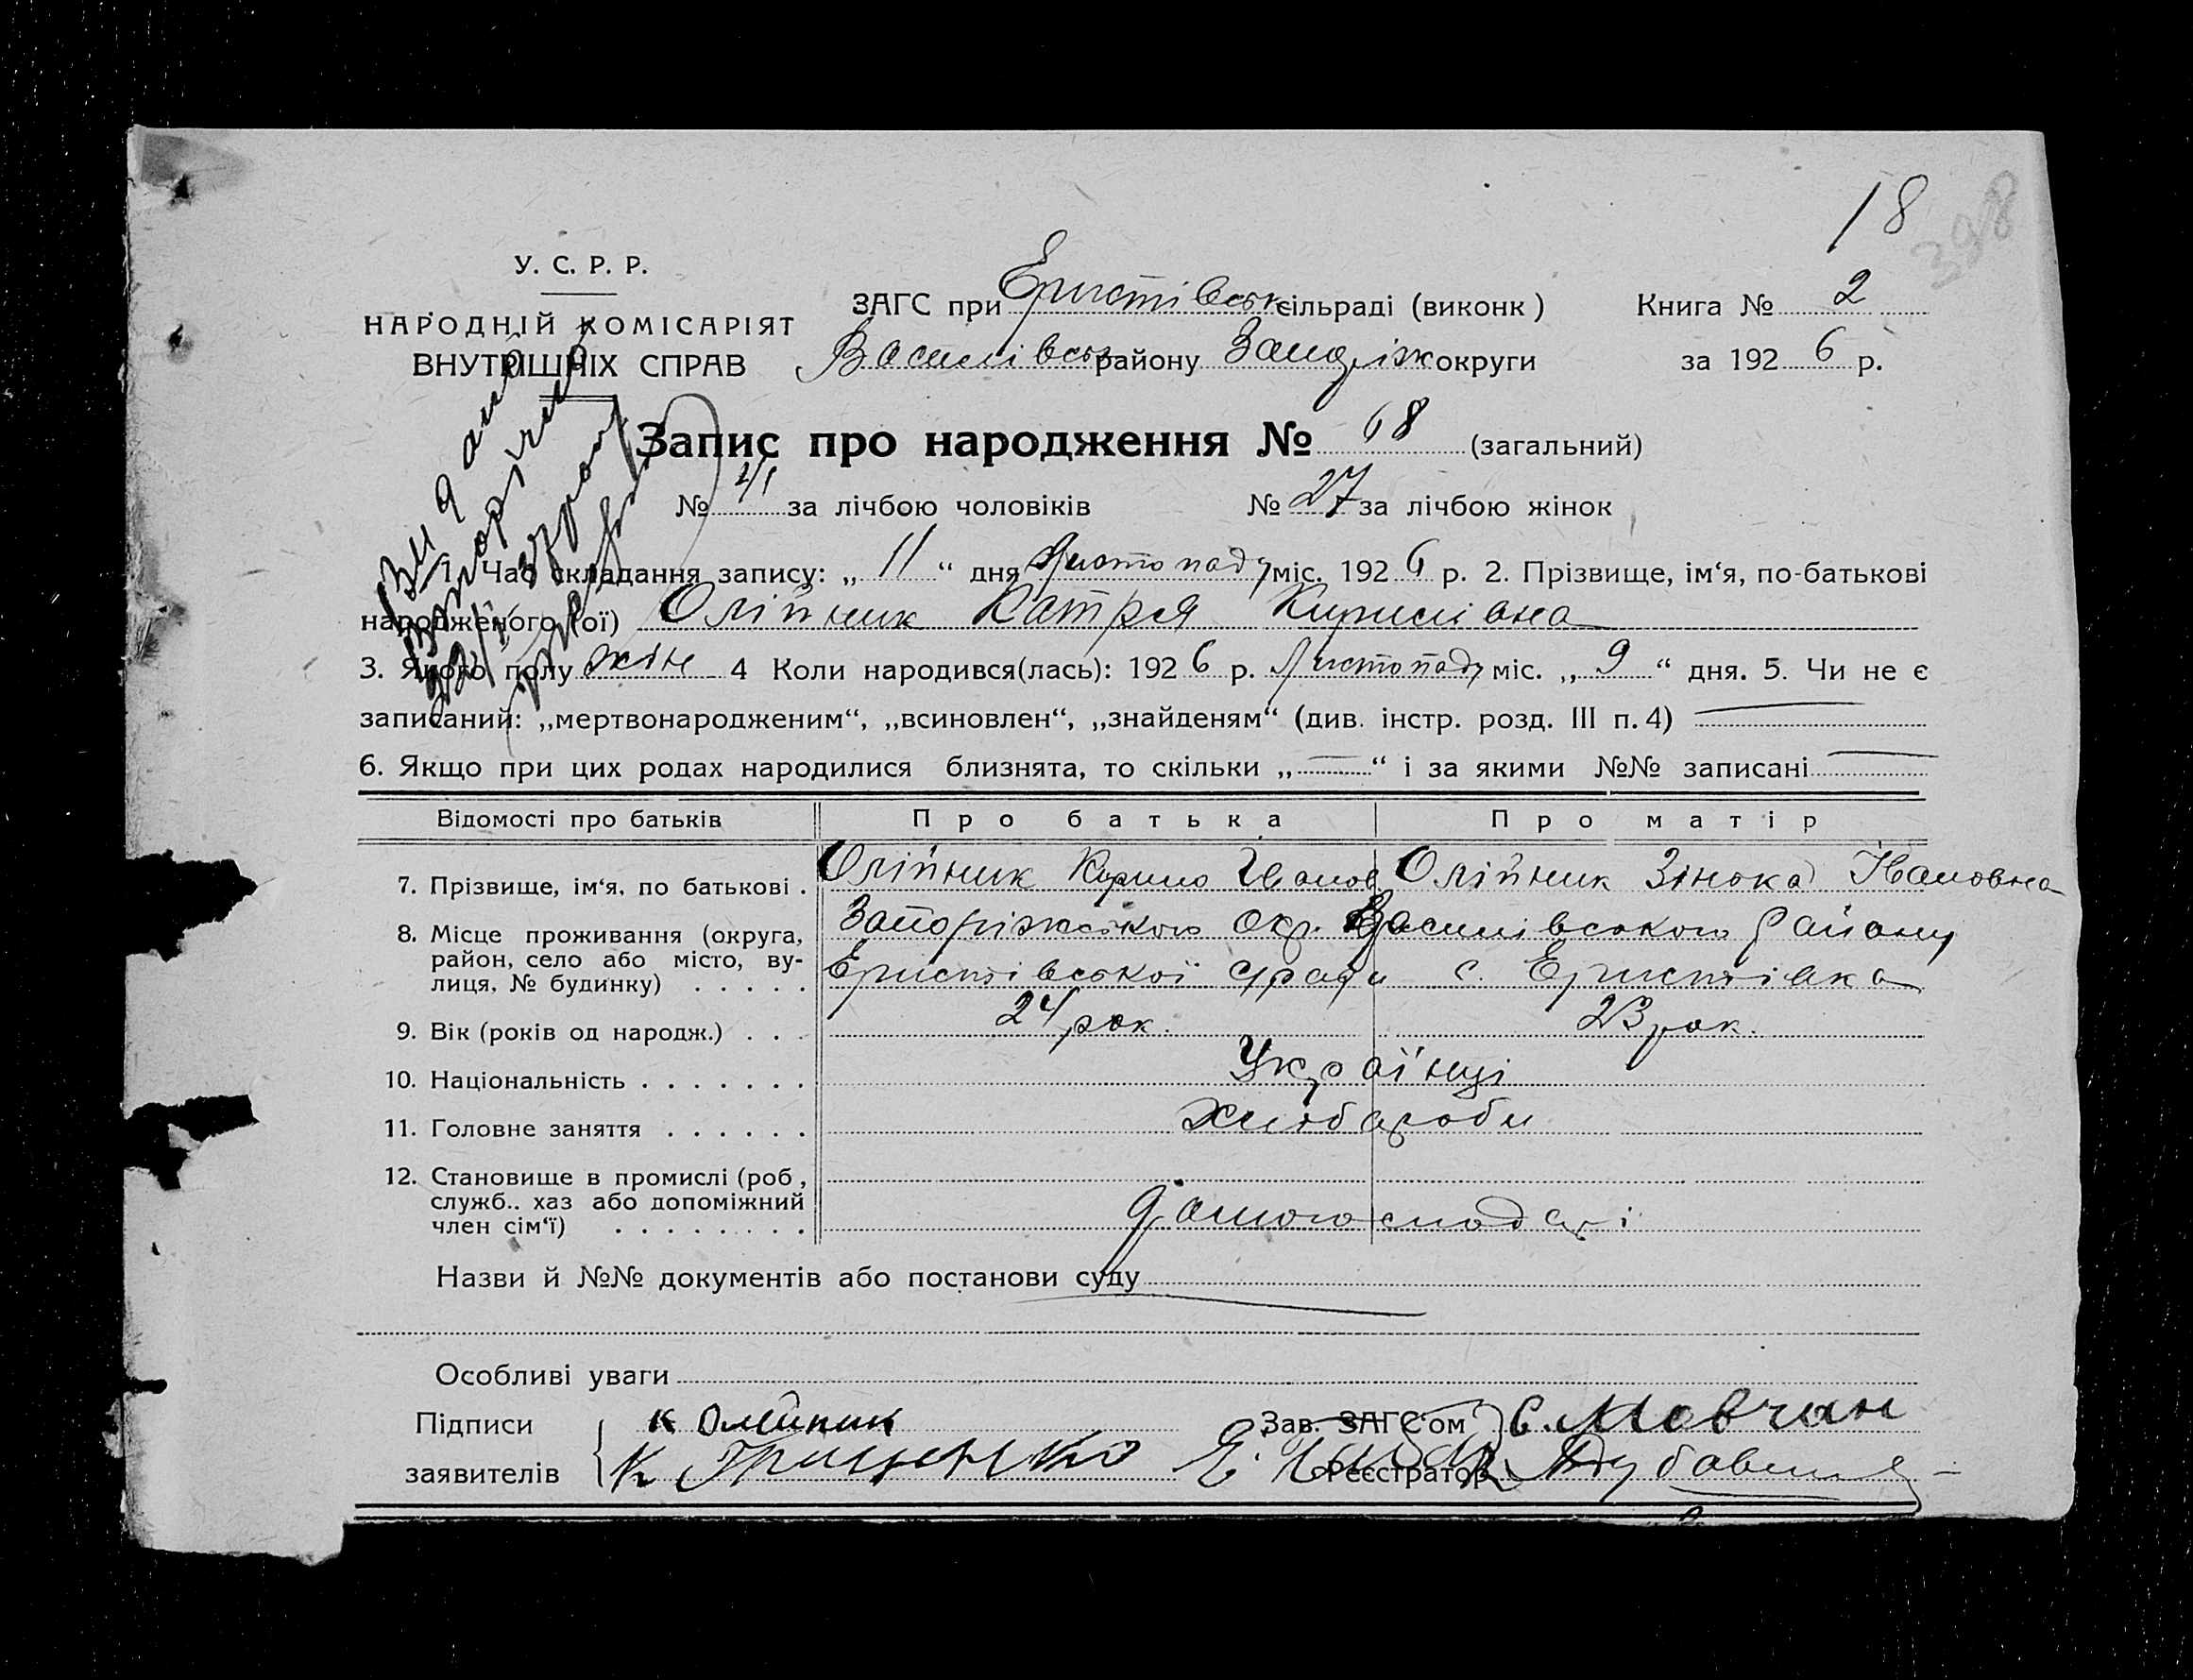 18
398
У. С. Р. Р.
НАРОДНІЙ КОМІСАРІЯТ
ВНУТРІШНІХ СПРАВ
ЗАГС при Еристівськ сільраді (виконк) Книга № 2
Василівськ району Запоріж округи за 1926 р.
Запис про народження № 68 (загальний)
№ 41 за лічбою чоловіків № 27 за лічбою жінок
1. Час складання запису: „ 11 “ дня Листопаду міс. 1926 р. 2. Прізвище, ім‘я, по-батькові
народженого (ої) Олійник Катря Кирилівна
3. Якого полу жін 4 Коли народився(лась): 1926 р. Листопаду міс. „ 9 “ дня. 5. Чи не є
записаний: „мертвонародженим“, „всиновлен“, „знайденям“ (див. інстр. розд. III п. 4) —
6. Якщо при цих родах народилися близнята, то скільки „ — “ і за якими №№ записані —
Відомості про батьків Про батька Про матір
7. Прізвище, ім‘я, по батькові . Олійник Кирило Іванов Олійник Зінька Івановна
8. Місце проживання (округа, Запоріжського Окр. Василівського Району
район, село або місто, ву-
лиця, № будинку) . . . . . Еристівської с/ради с. Еристівка
9. Вік (років од народж.) . . . 24 рок. 23 рок.
10. Національність . . . . . . . Українці
11. Головне заняття . . . . . . Хлібороби
12. Становище в промислі (роб,
служб.. хаз або допоміжний
член сім‘ї) . . . . . . . .
Назви й №№ документів або постанови суду
Особливі уваги
Підписи К Олійник Зав. ЗАГС‘ом С. Мовчан
заявителів К Грищенко Реєстратор